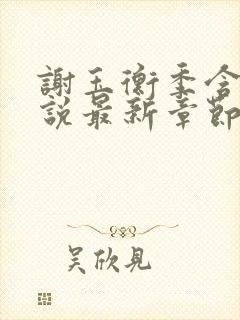 謝玉衡季含
說最新章節
吴欣見